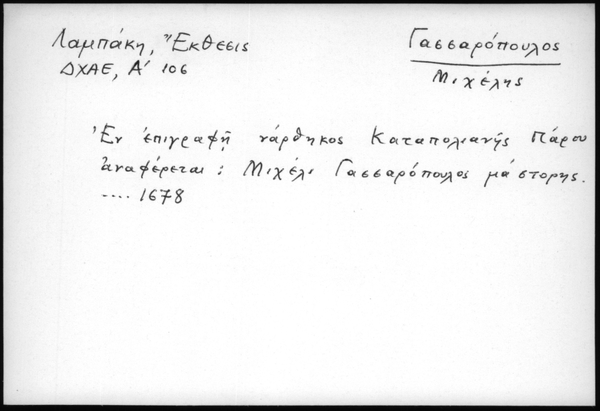 Λαμπάκη, Ἔκθεσις
ΔΧΑΕ, Α' 106
Γασσαρόπουλος
Μιχέλης
Ἐν ἐπιγραφῇ νάρθηκος Καταπολιανῆς Πάρου
ἀναφέρεται : Μιχέλι Γασσαρόπουλος μάστορης.
.... 1678